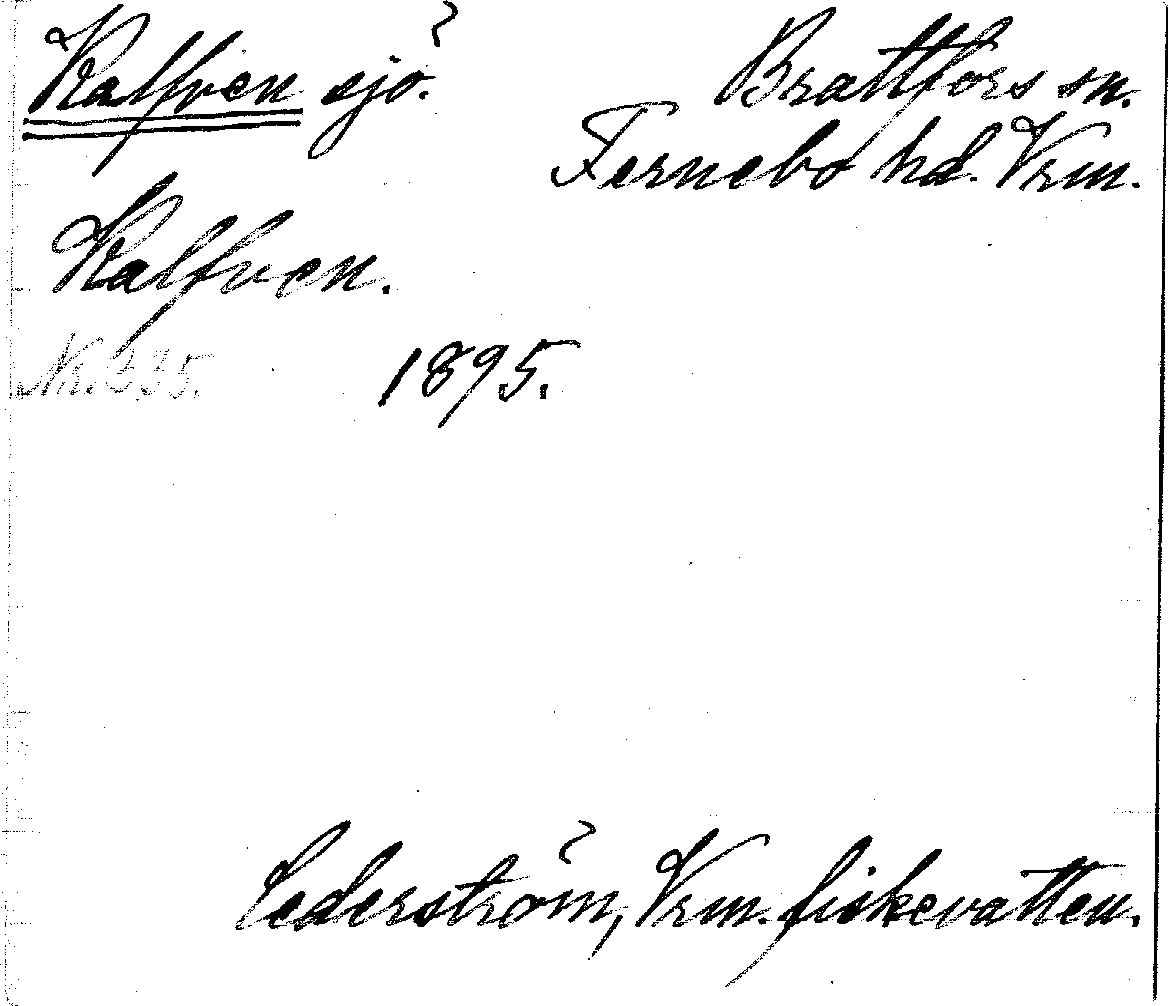 Kalfven sjö.
Brattfors sn.
Fernebo hd. Vrm.
Kalfven.
Nr. 335. 1895.
Cederström, Vrm. fiskevatten.